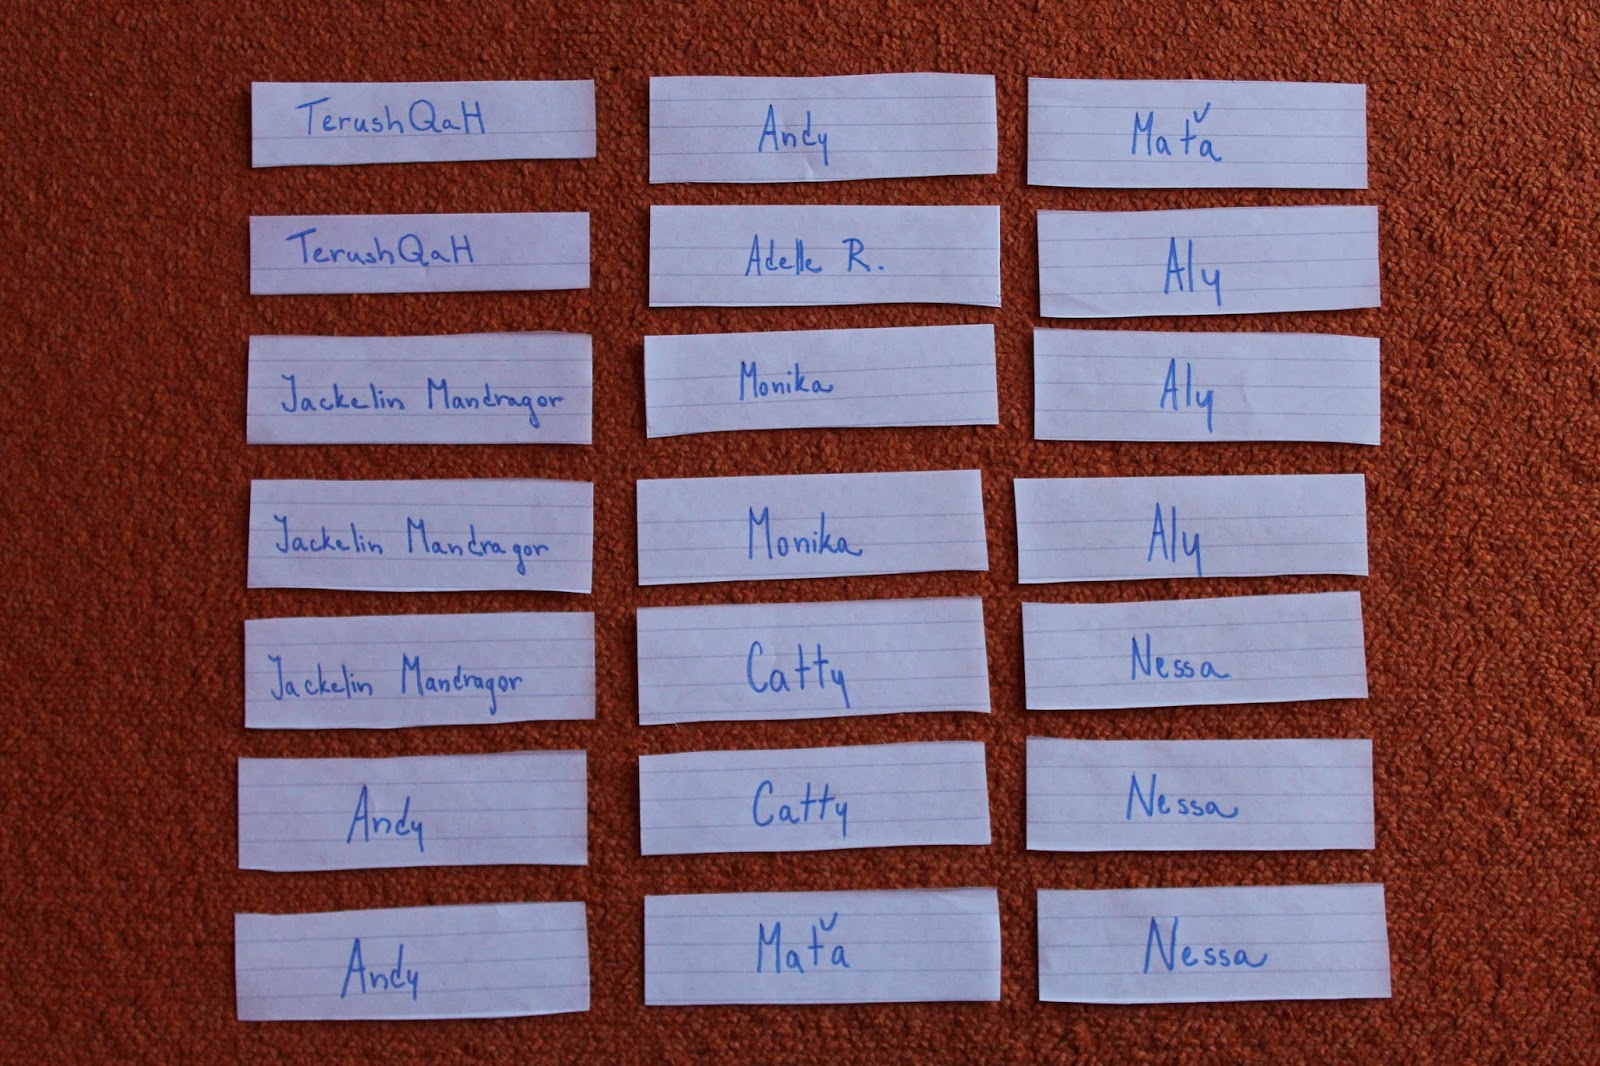 TerushQaH
Andy
Maťa
TerushQaH
Adelle R.
Aly
Jackelin Mandragor
Monika
Aly
Jackelin Mandragor
Monika
Aly
Jackelin Mandragor
Catty
Nessa
Andy
Catty
Nessa
Andy
Maťa
Nessa